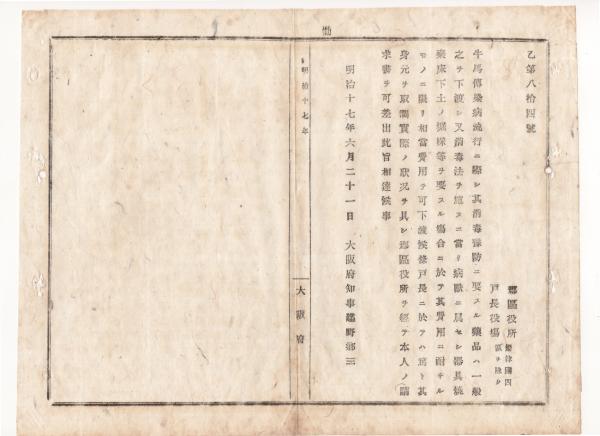 乙第八拾四號
郡區役所
戸長役場
牛馬傳染病流行ニ際シ其消毒豫防ニ要スル藥品ハ一般
之ヲ下渡シ又消毒法ヲ施スニ當リ病獸ニ屬セシ器具燒
棄床下土ノ掘採等ヲ要スル塲合ニ於テ其費用ニ耐ヘサル
モノニ限リ相當費用ヲ可下渡候條戸長ニ於テハ篤ト其
身元ヲ取調實際ノ狀況ヲ具シ郡區役所ヲ經テ本人ノ請
求書ヲ可差出此旨相達候事
明治十七年六月二十一日 大阪府知事建野郷三
明治十七年
大阪府